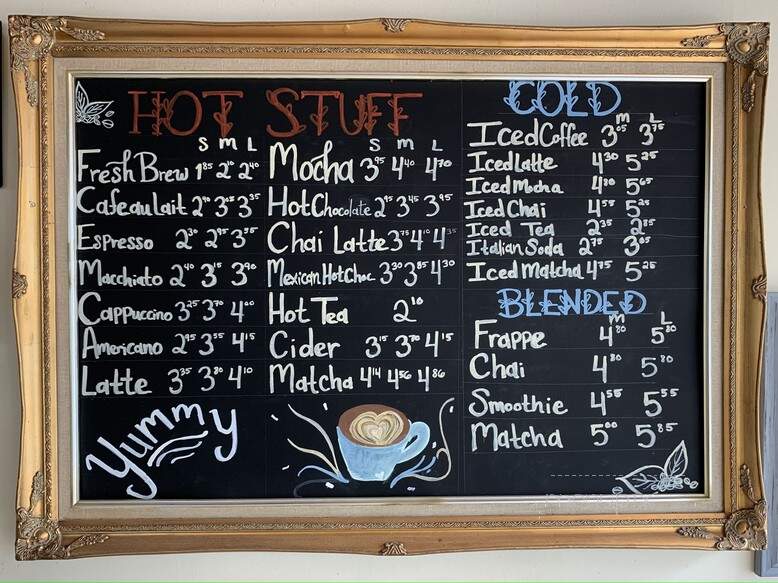 HOT STUFF
S M L
Fresh Brew 1.85 2.10 2.40
Cafe au lait 3.05 3.35
Espresso 2.30 2.95
Macchiato 2.40 3.15 3.90
Cappuccino 3.25 3.70
Americano 2.95 3.55 4.15
Latte 3.35 3.80 4.10
S M L
Mocha 3.95 4.40 4.70
Hot Chocolate 2.95 3.45 3.95
Chai Latte 3.75 4.10
Mexican Hot Choc 3.30 3.85 4.30
Hot Tea 2.10
Cider 3.15 3.70 4.15
Matcha 4.14 4.56 4.86
Yummy
COLD
M L
Iced Coffee 3.05 3.75
Iced latte 4.30 5.25
Iced Mocha 4.80 5.65
Iced Chai 4.55 5.25
Iced Tea 2.35 2.85
Italian Soda 2.75 3.05
Iced Matcha 4.75 5.25
BLENDED
M L
Frappe 4.80 5.80
Chai 4.80 5.80
Smoothie 4.55 5.55
Matcha 5.00 5.85